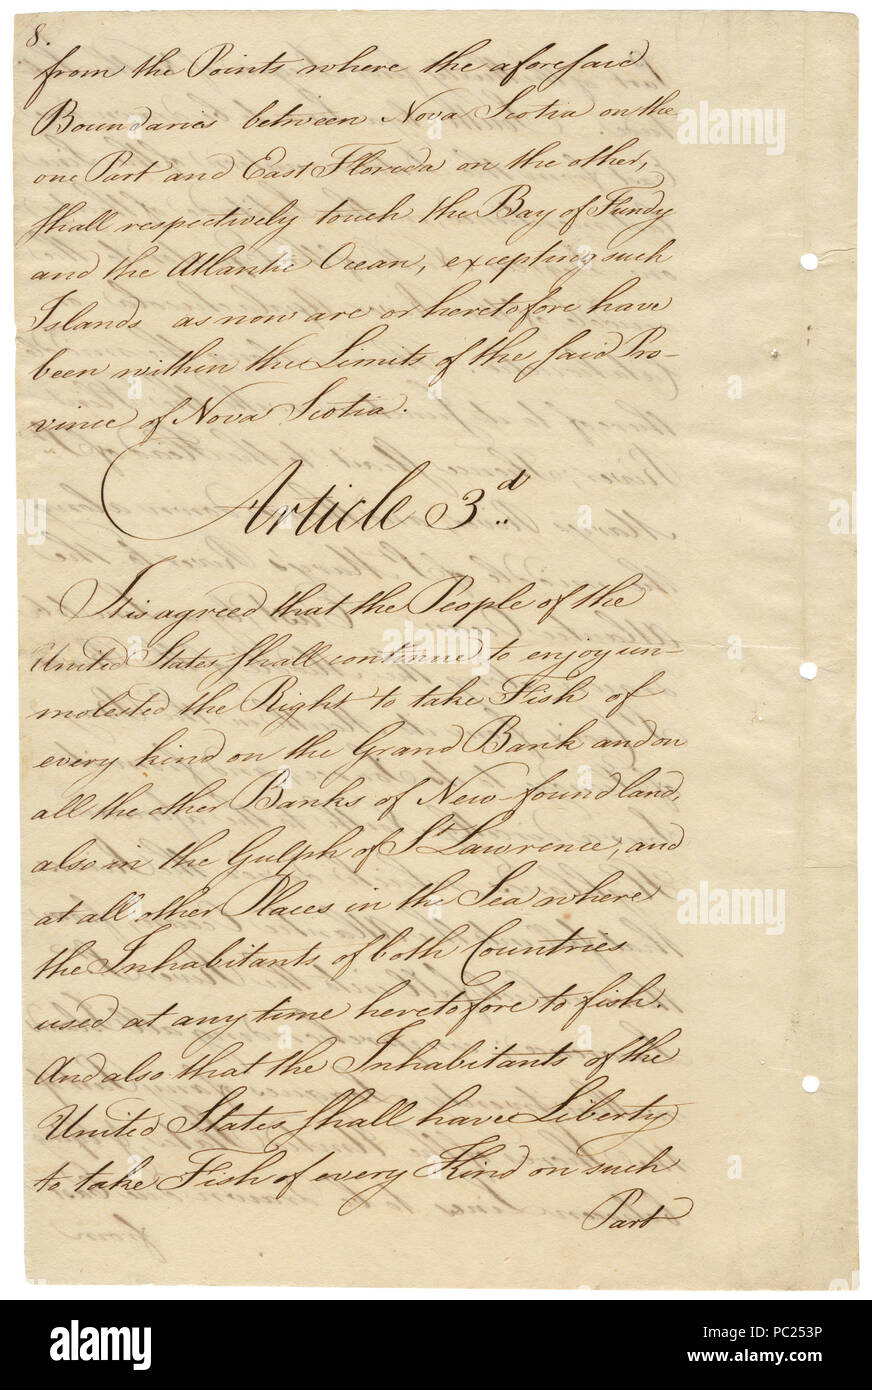 8.
from the Points where the aforesaid
Boundaries between Nova Scotia on the
one Part and East Florida on the other,
shall respectively touch the Bay of Fundy
and the Atlantic Ocean, excepting such
Islands as now are or heretofore have
been within the Limits of the said Pro-
vince of Nova Scotia.
Article 3d..
It is agreed that the People of the
United States shall continue to enjoy un-
molested the Right to take Fish of
every kind on the Grand Bank and on
all the other Banks of New-foundland,
also in the Gulph of St Lawrence, and
at all other Places in the Sea where
the Inhabitants of both Countries
used at any time heretofore to fish.
And also that the Inhabitants of the
United States shall have Liberty
to take Fish of every Kind on such
Part
from
alamy
Image ID: PC253P
www.alamy.com